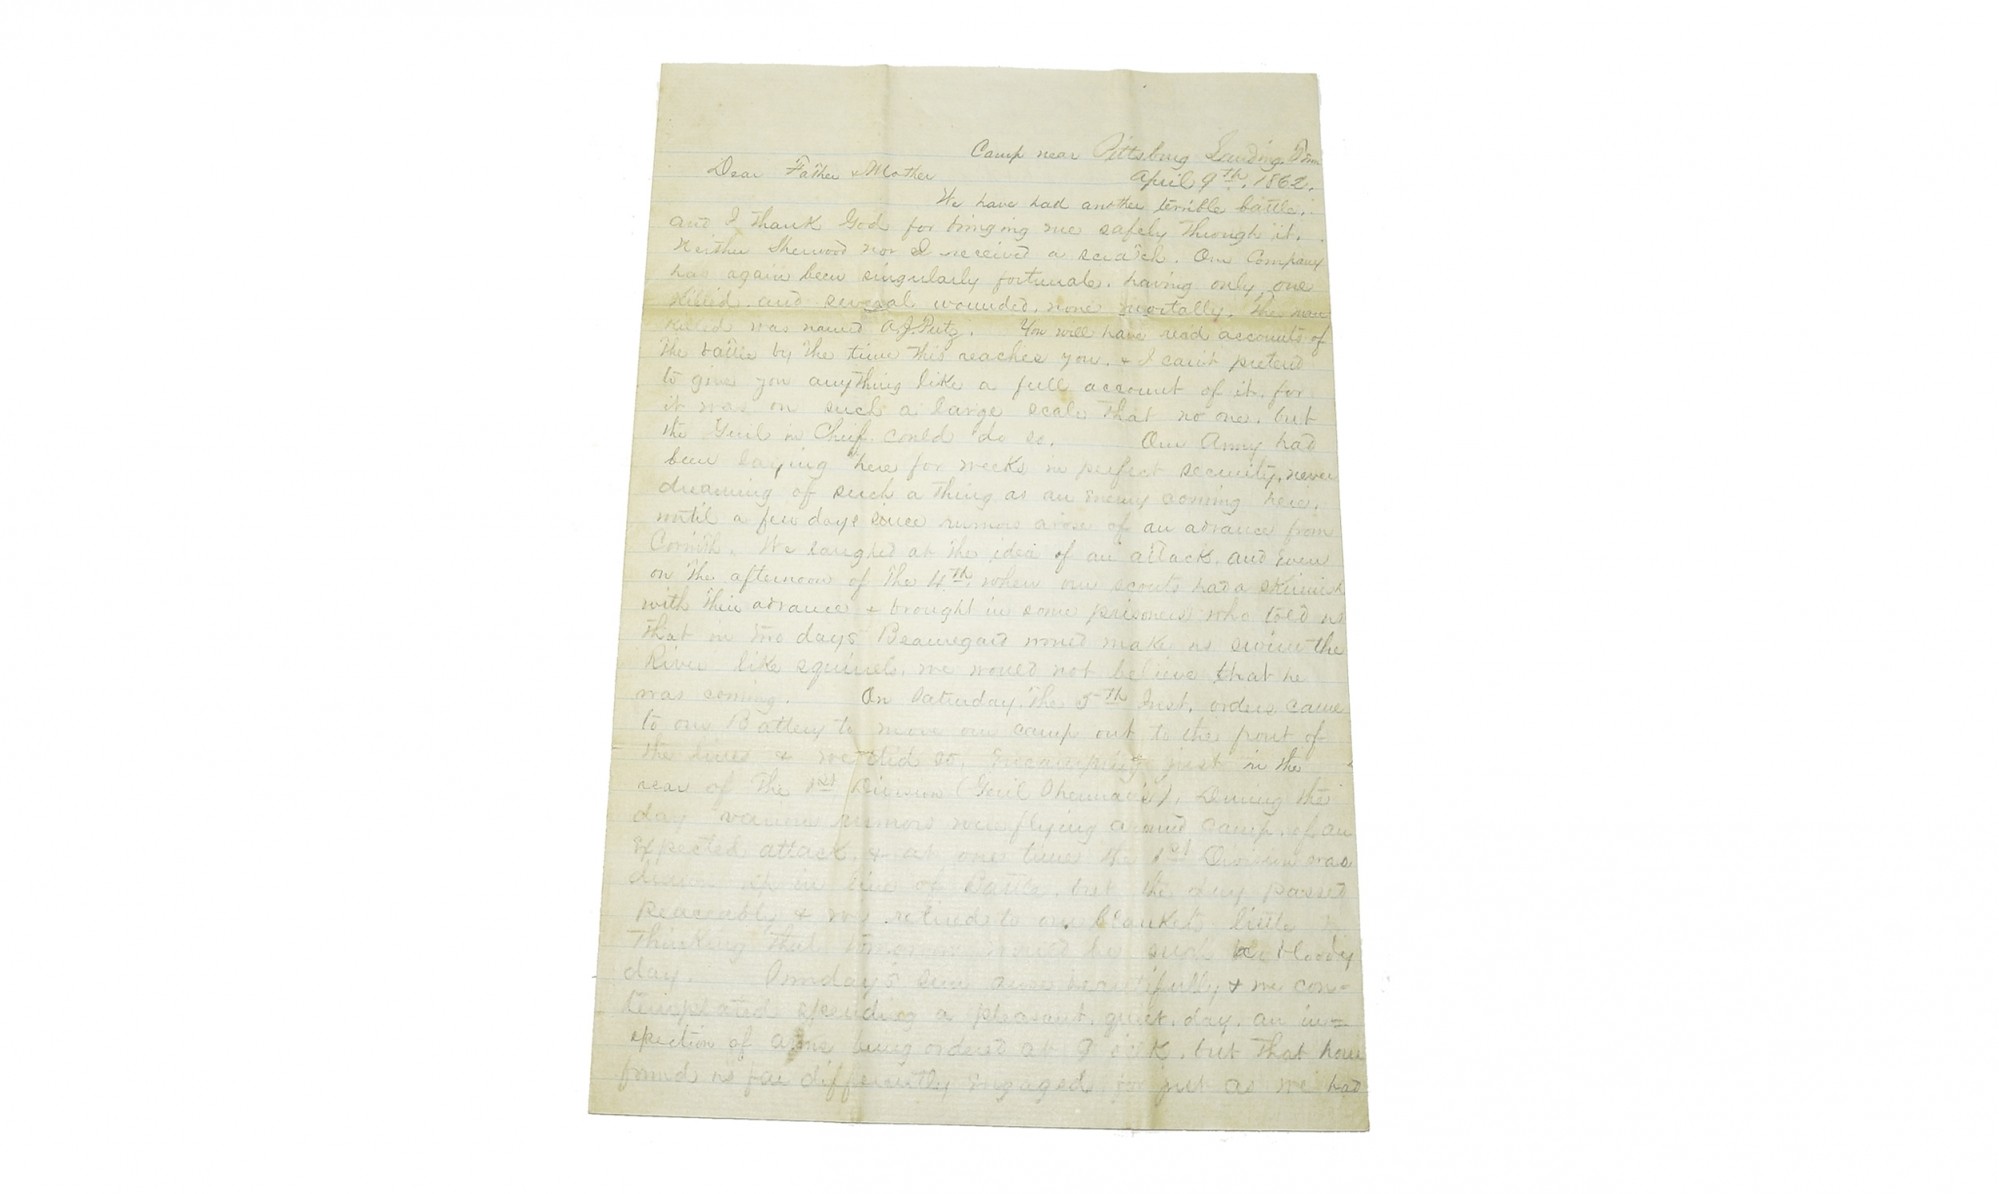 Camp near Pittsburg Landing. Tenn
Dear Father & Mother April 9th. 1862.
We have had another terrible battle.
and I thank God for bringing me safely through it.
Neither Sherwood nor I received a scratch. Our Company
has again been singularly fortunate. having only one
killed. and several wounded, none mortally. The man
killed was named A.J. You will have read accounts of
the battle by the time this reaches you. & I can't pretend
to give you anything like a full account of it. for
it was on such a large scale that no one. but
the Genl in Cheif could do so. Our Army had
been laying here for weeks in perfect security, never
dreaming of such a thing as an enemy coming here.
until a few days since rumors arose of an advance from
Corinth. We laughed at the idea of an attack. and even
on the afternoon of the 4th. when our scouts had a skirmish
with their advance & brought in some prisoners who told us
that in two days Beauregard would make us swim the
River like squirrels. we would not believe that he
was coming. On Saturday. the 5th Inst. orders came
to our Battery to move our camp out to the front of
the lines & we did so. encamping just in the
rear of the 1st Division (Genl Sherman's). During the
day various rumors were flying around camp. of an
expected attack. & at one time the 1st Division was
drawn up in line of Battle. but the day passed
peaceably & we retired to our blankets little
thinking that tomorrow would be such a bloody
day. Sunday's sun arose beautifully & we con=
templated spending a pleasant. quiet. day. an in=
spection of arms being ordered at 9 o'clk. but that hour
found us far differently engaged for just as we had